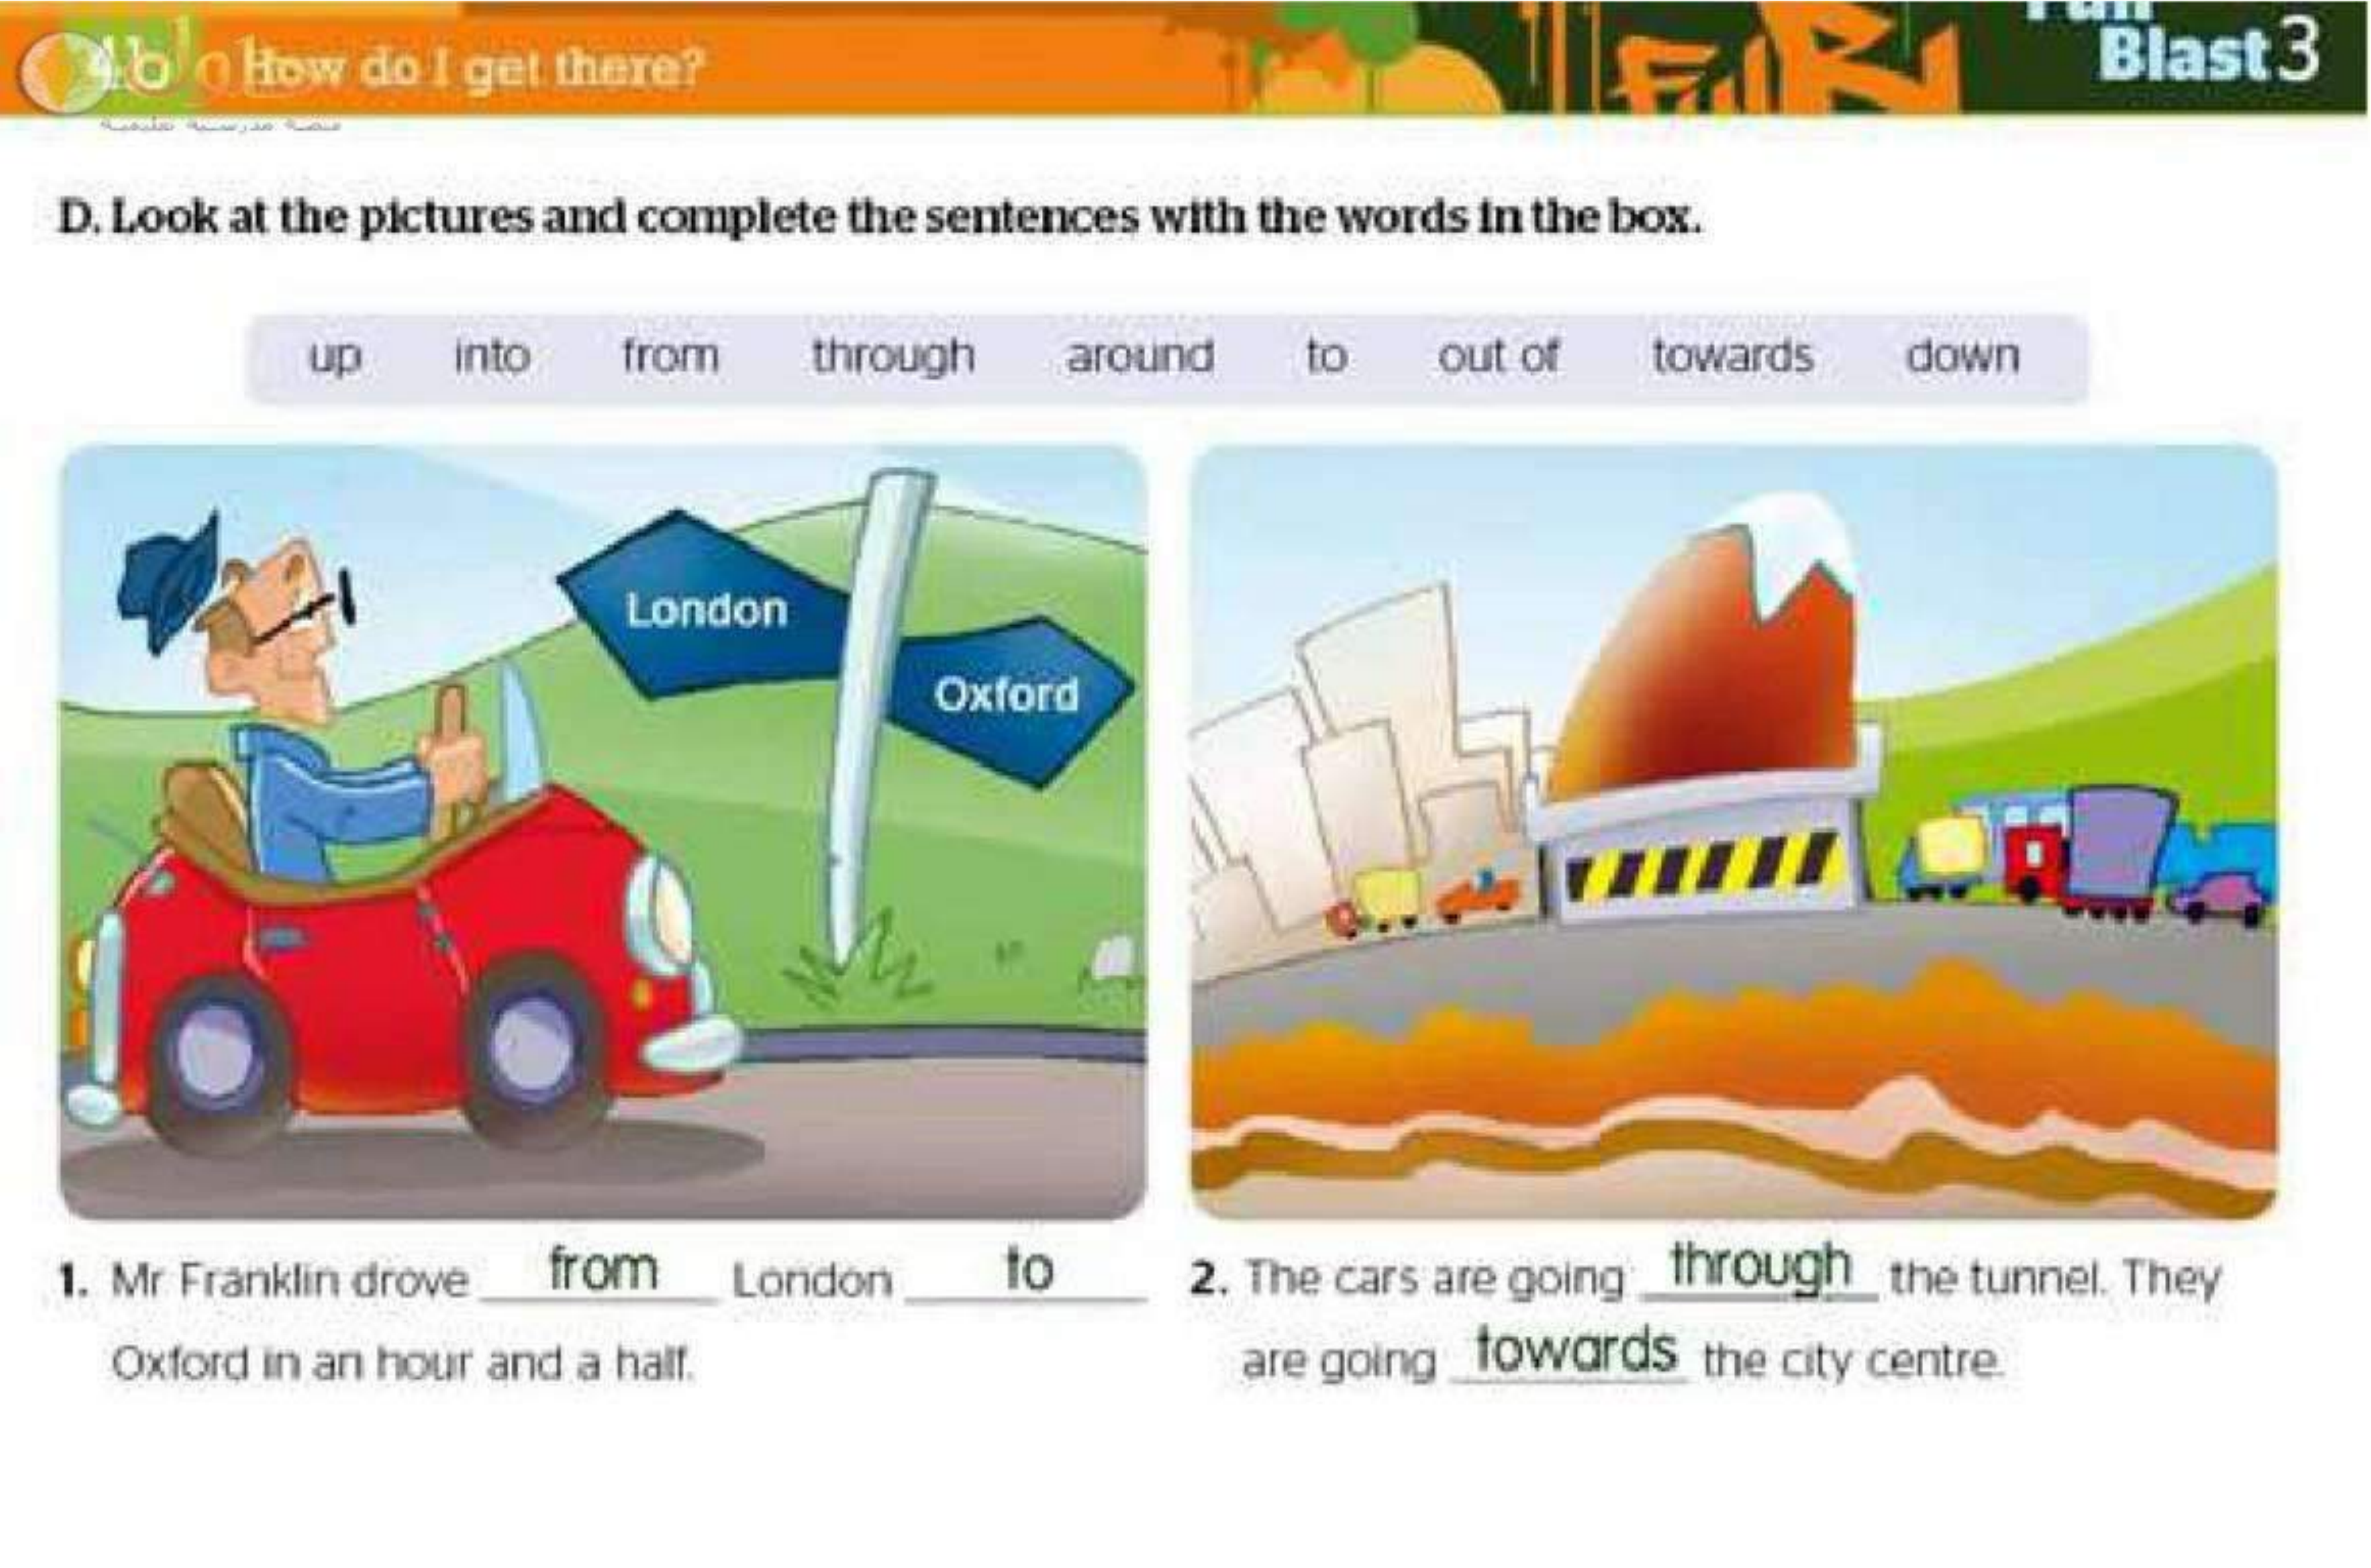 4b How do I get there?
Fun
Blast 3
منصة مدرسية تعليمية
D. Look at the pictures and complete the sentences with the words in the box.
up into from through around to out of towards down
London
Oxford
1. Mr Franklin drove from London to
Oxford in an hour and a half.
2. The cars are going through the tunnel. They
are going towards the city centre.